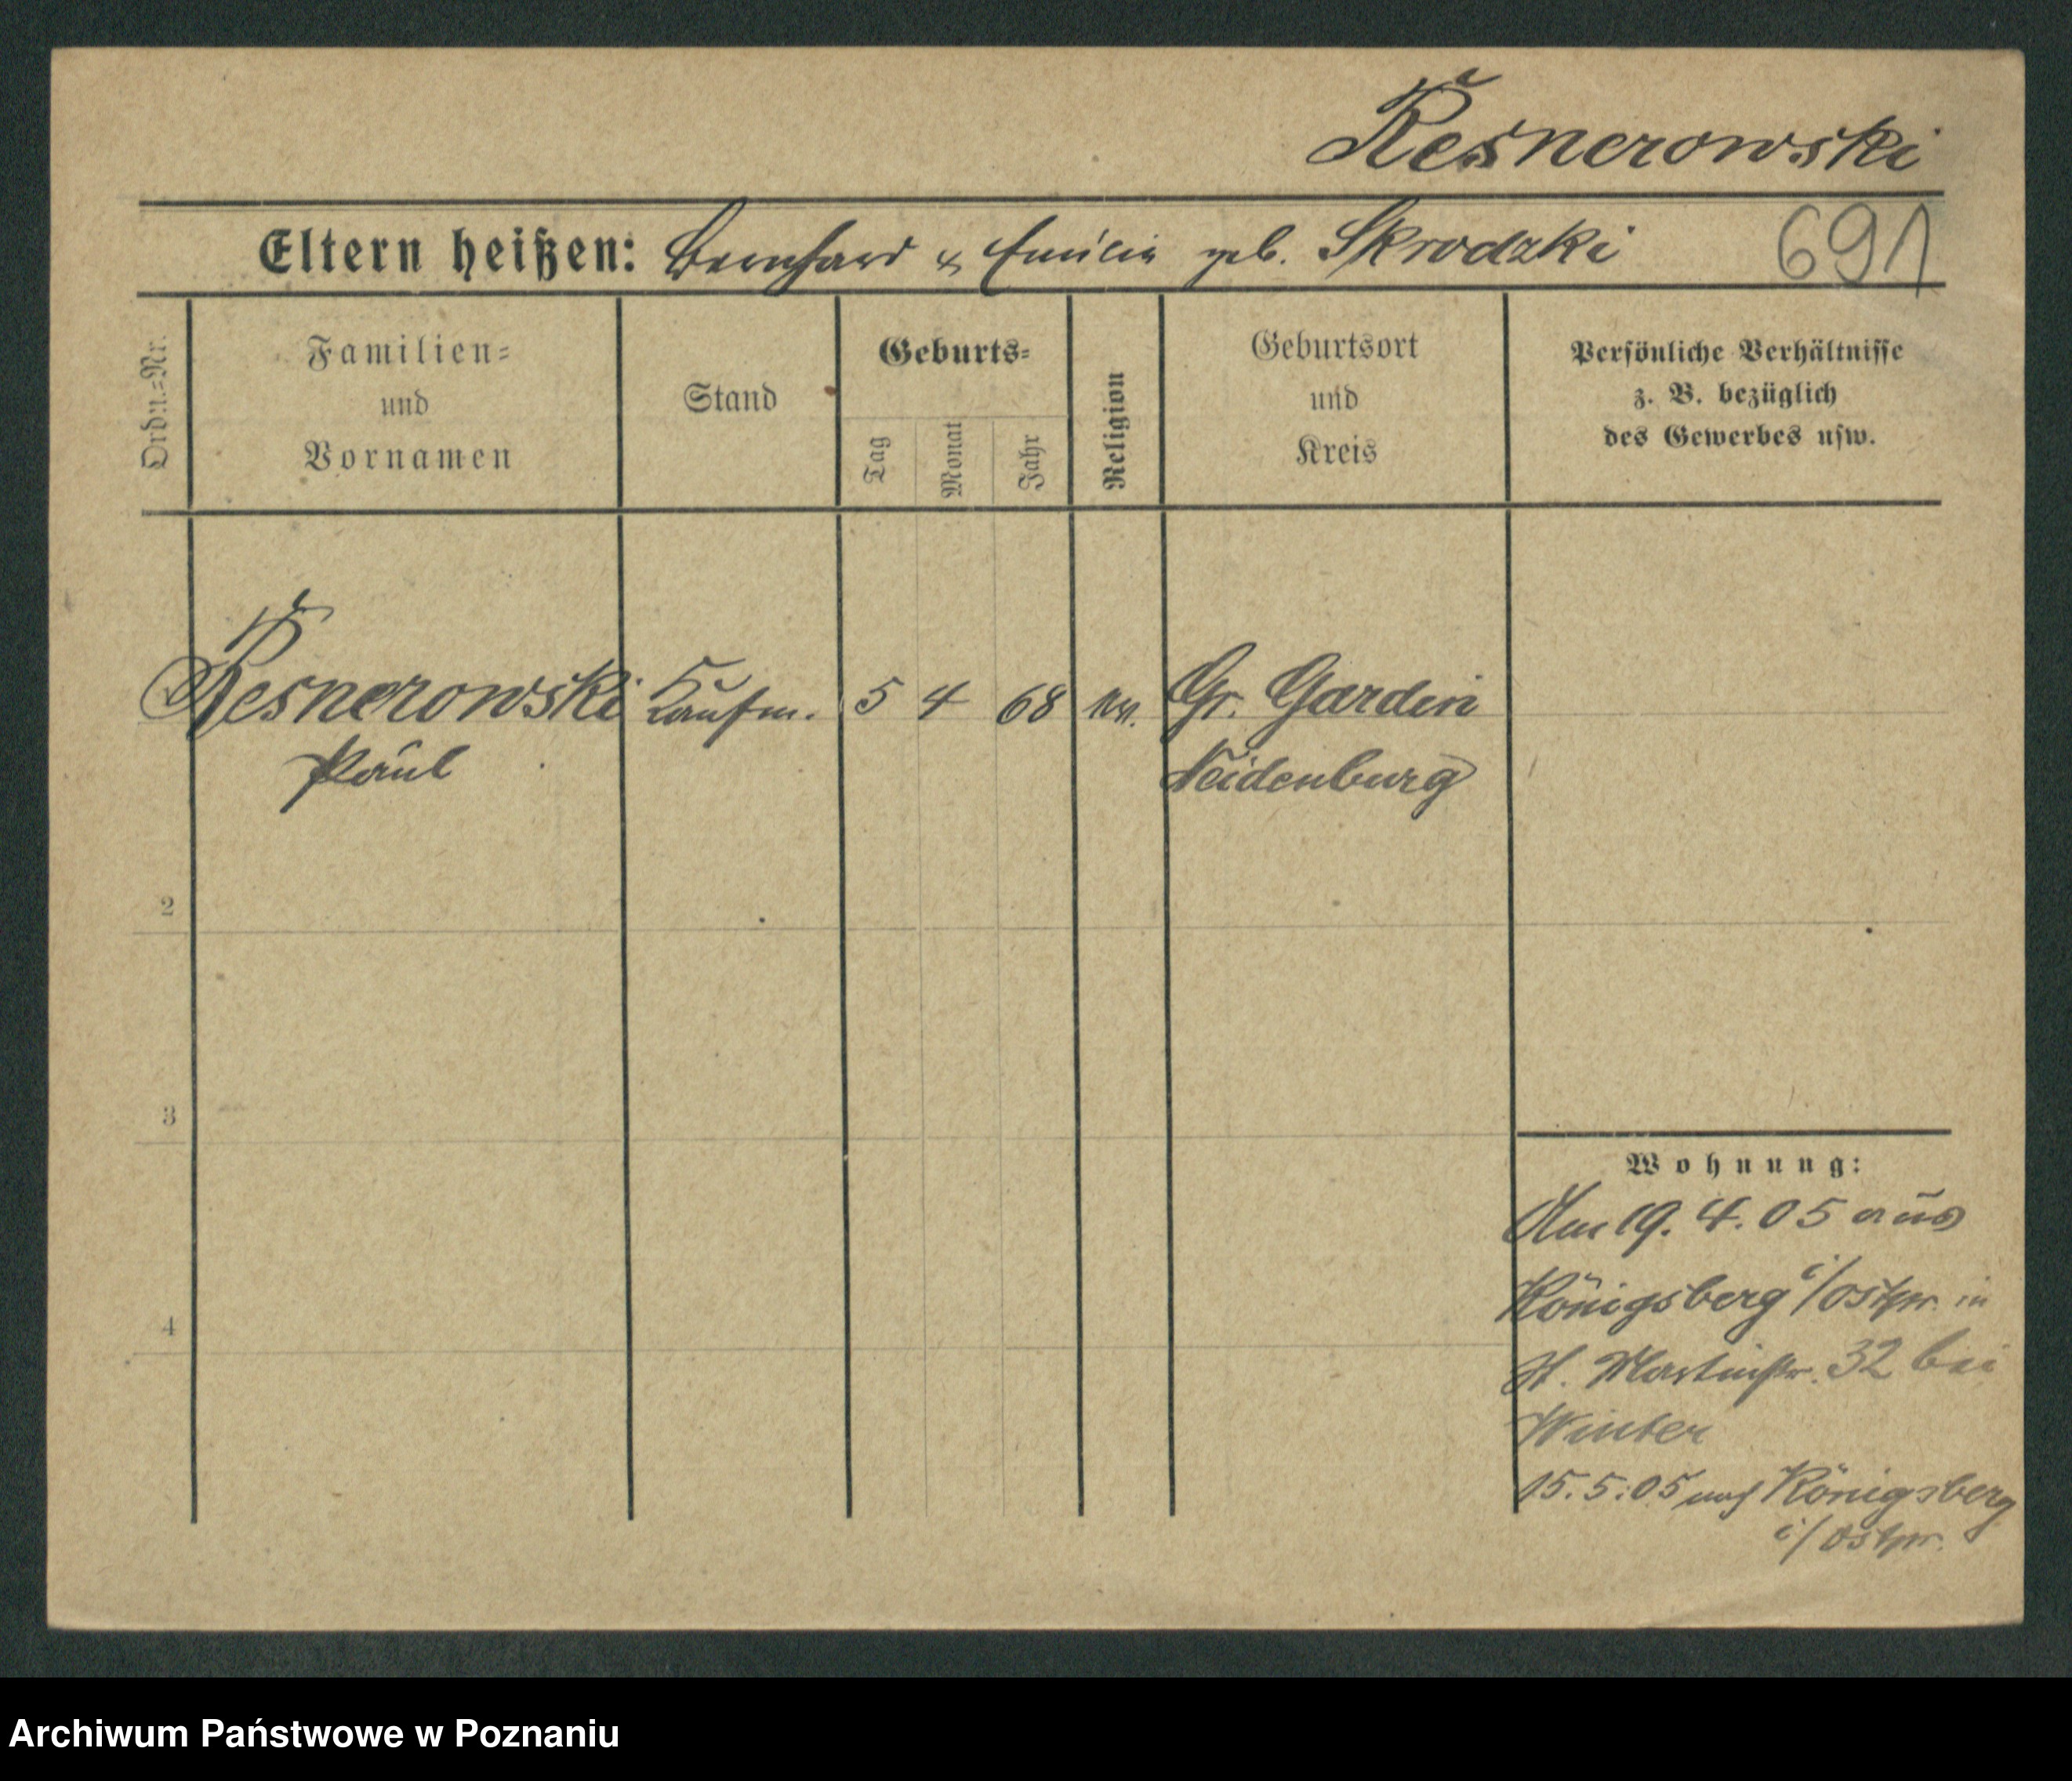 Resnerowski
Eltern heißen: Bernhard & Emilie geb. Skrodzki 691
Ordn.=Nr.
Familien=
und
Vornamen
Stand
Geburts=
Tag
Monat
Jahr
Religion
Geburtsort
und
Kreis
Persönliche Verhältnisse
z. B. bezüglich
des Gewerbes usw.
Resnerowski Kaufm. 5 4 68 Gr. Gardin
Paul Neidenburg
2
3
4
Wohnung:
Am 19. 4. 05 aus
Königsberg i/Ostpr. in
St. Martinstr. 32 bei
Winter
15. 5. 05 nach Königsberg
i/Ostpr.
Archiwum Państwowe w Poznaniu